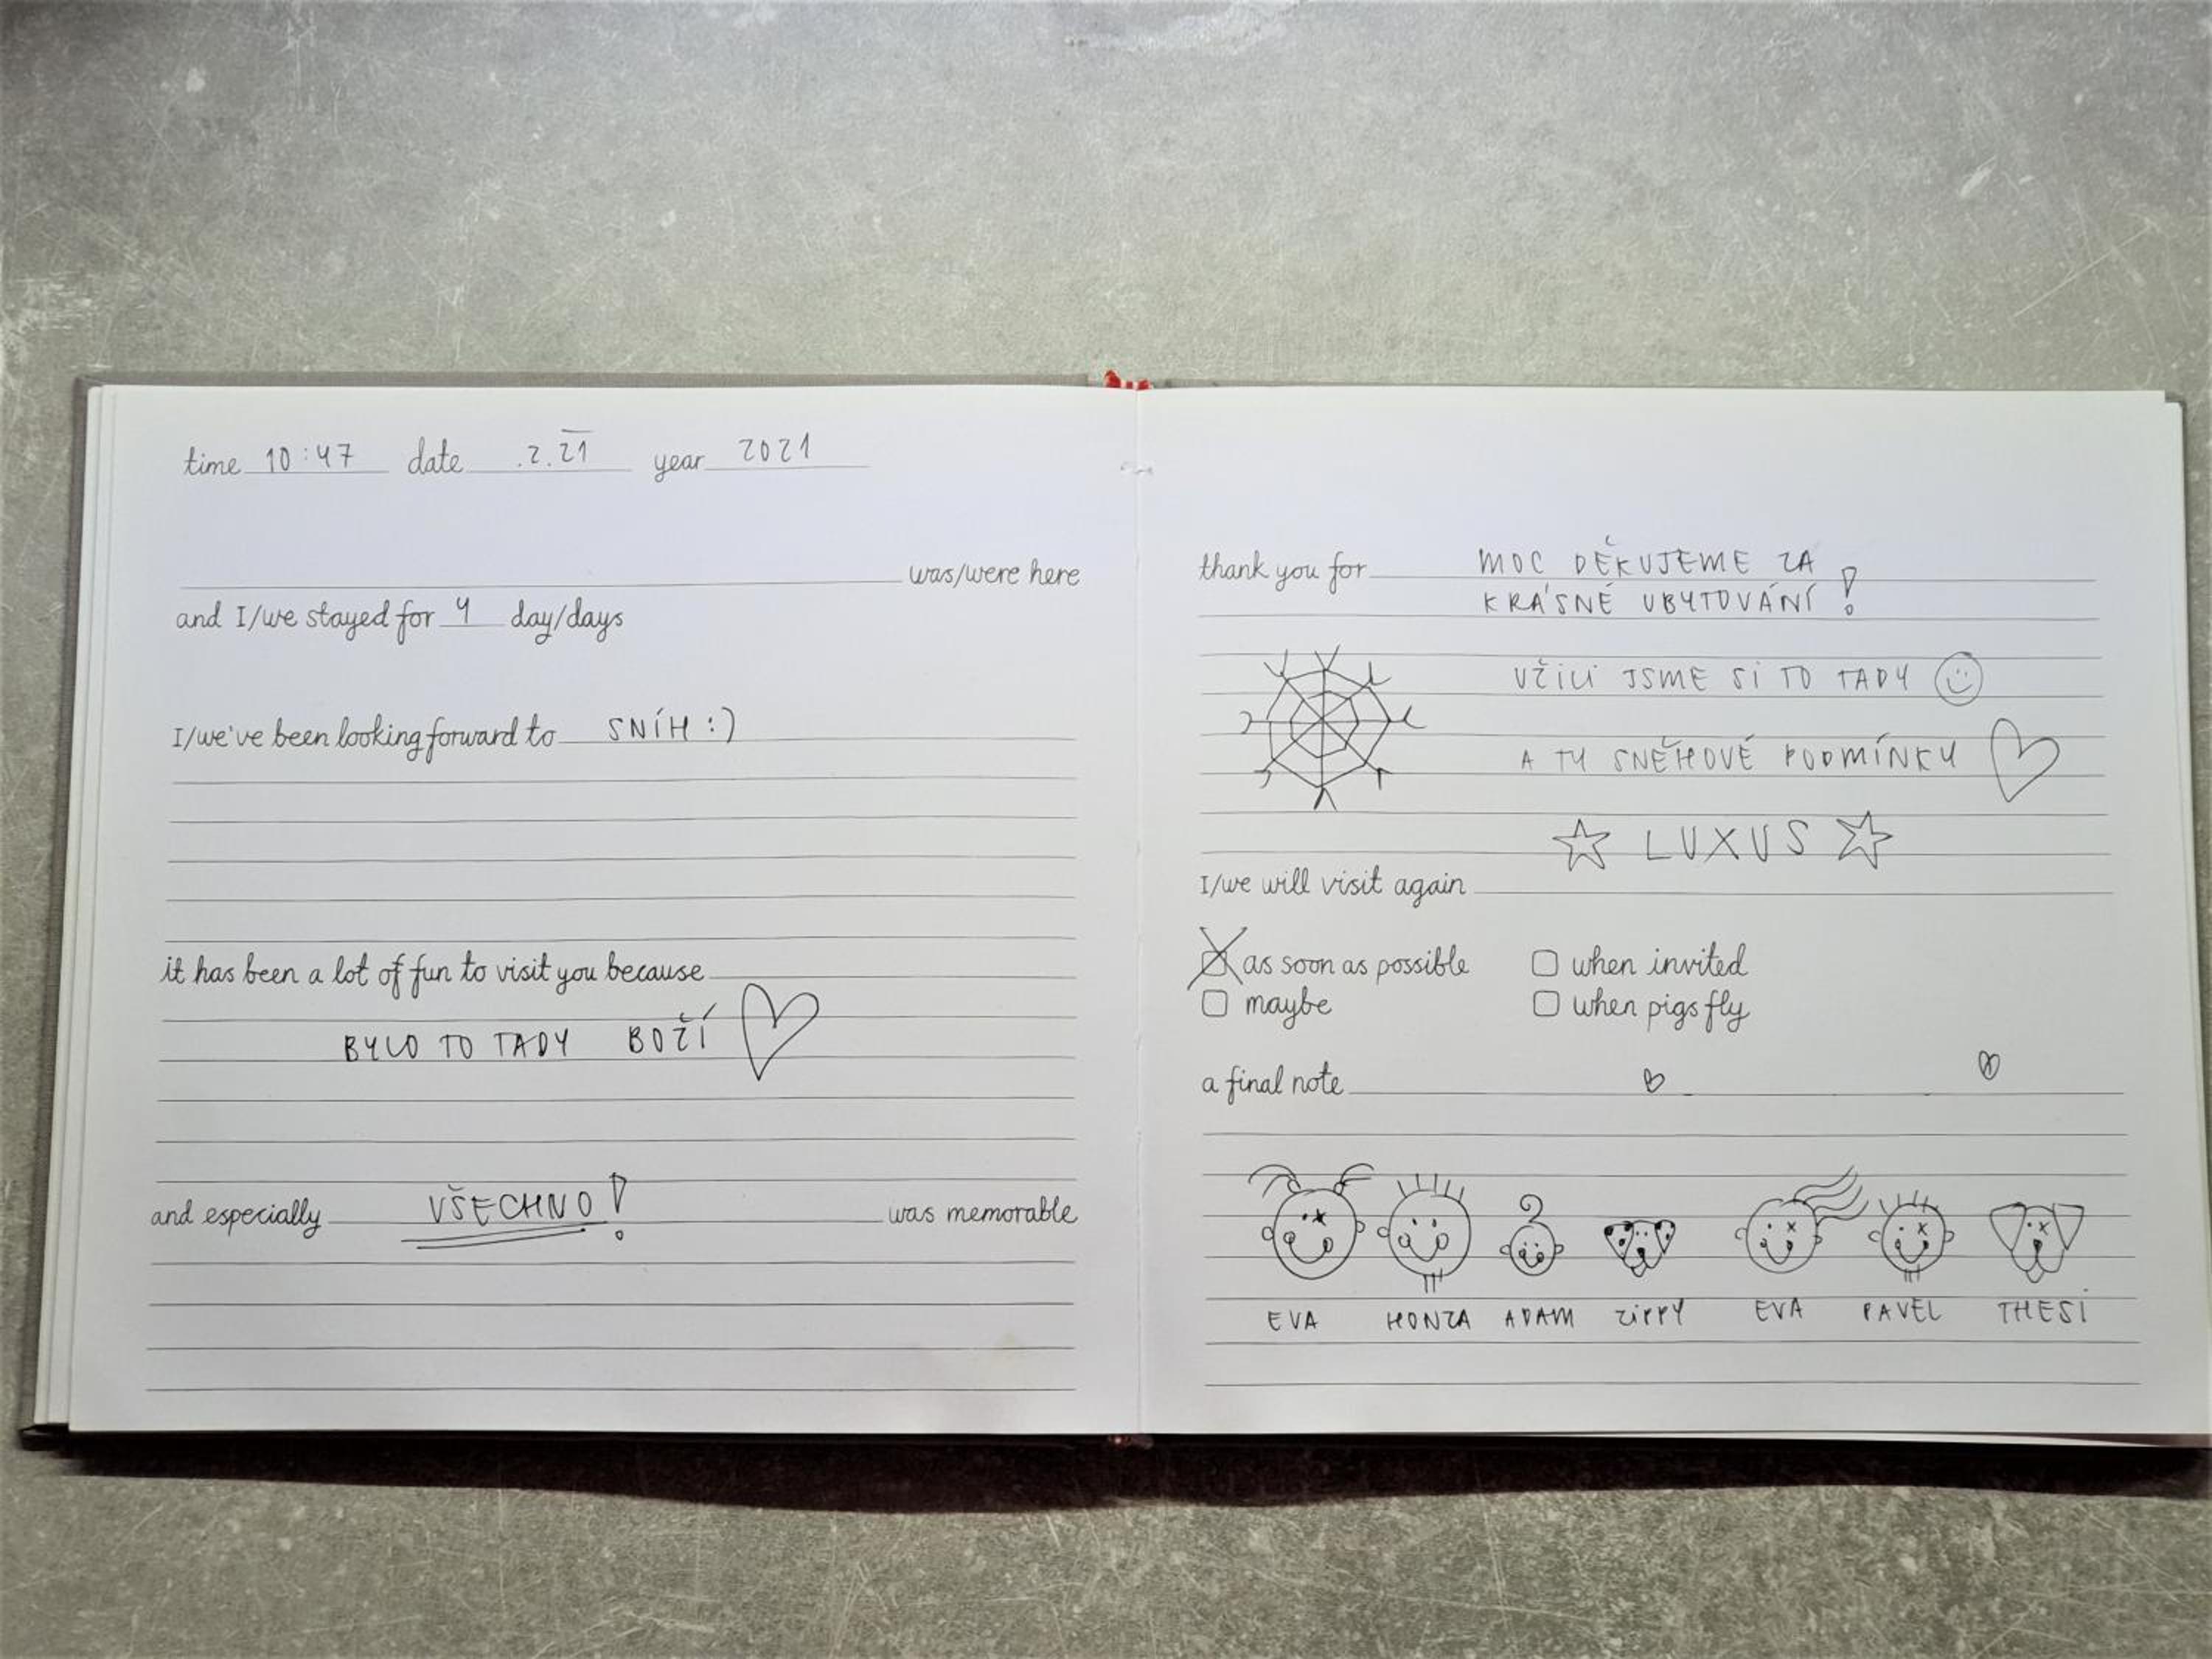 time 10:47 date .2.21 year 2021
was/were here
and I/we stayed for 4 day/days
I/we've been looking forward to SNÍH :)
it has been a lot of fun to visit you because
BYLO TO TADY BOŽÍ
and especially VŠECHNO! was memorable
thank you for MOC DĚKUJEME ZA
KRÁSNÉ UBYTOVÁNÍ!
UŽILI JSME SI TO TADY
A TY SNĚHOVÉ PODMÍNKY
LUXUS
I/we will visit again
as soon as possible when invited
maybe when pigs fly
a final note
EVA HONZA ADAM ZIPPY EVA PAVEL THESI